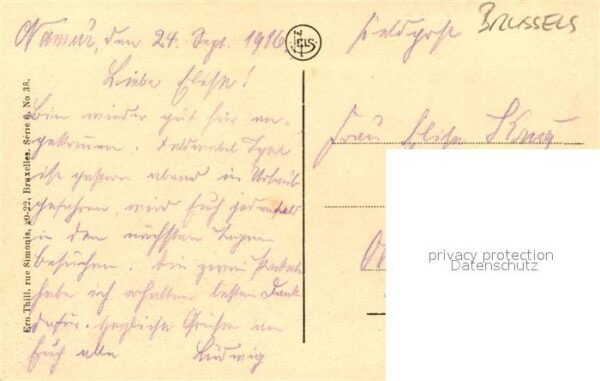 Namur, den 24. Sept. 1916
Liebe Elise!
Bin wieder gut hier an-
gekommen. Feldwebel
ist gestern abend in Urlaub
gefahren, wird Euch jedenfalls
in den nächsten Tagen
besuchen. Die zwei Pakete
habe ich erhalten besten Dank
dafür. Herzliche Grüße an
Euch alle Ludwig
Ern. Thill, rue Simonis, 20-22, Bruxelles. Série 6, No 38.
NELS
Feldpost
BRUSSELS
Frau Elise
privacy protection
Datenschutz